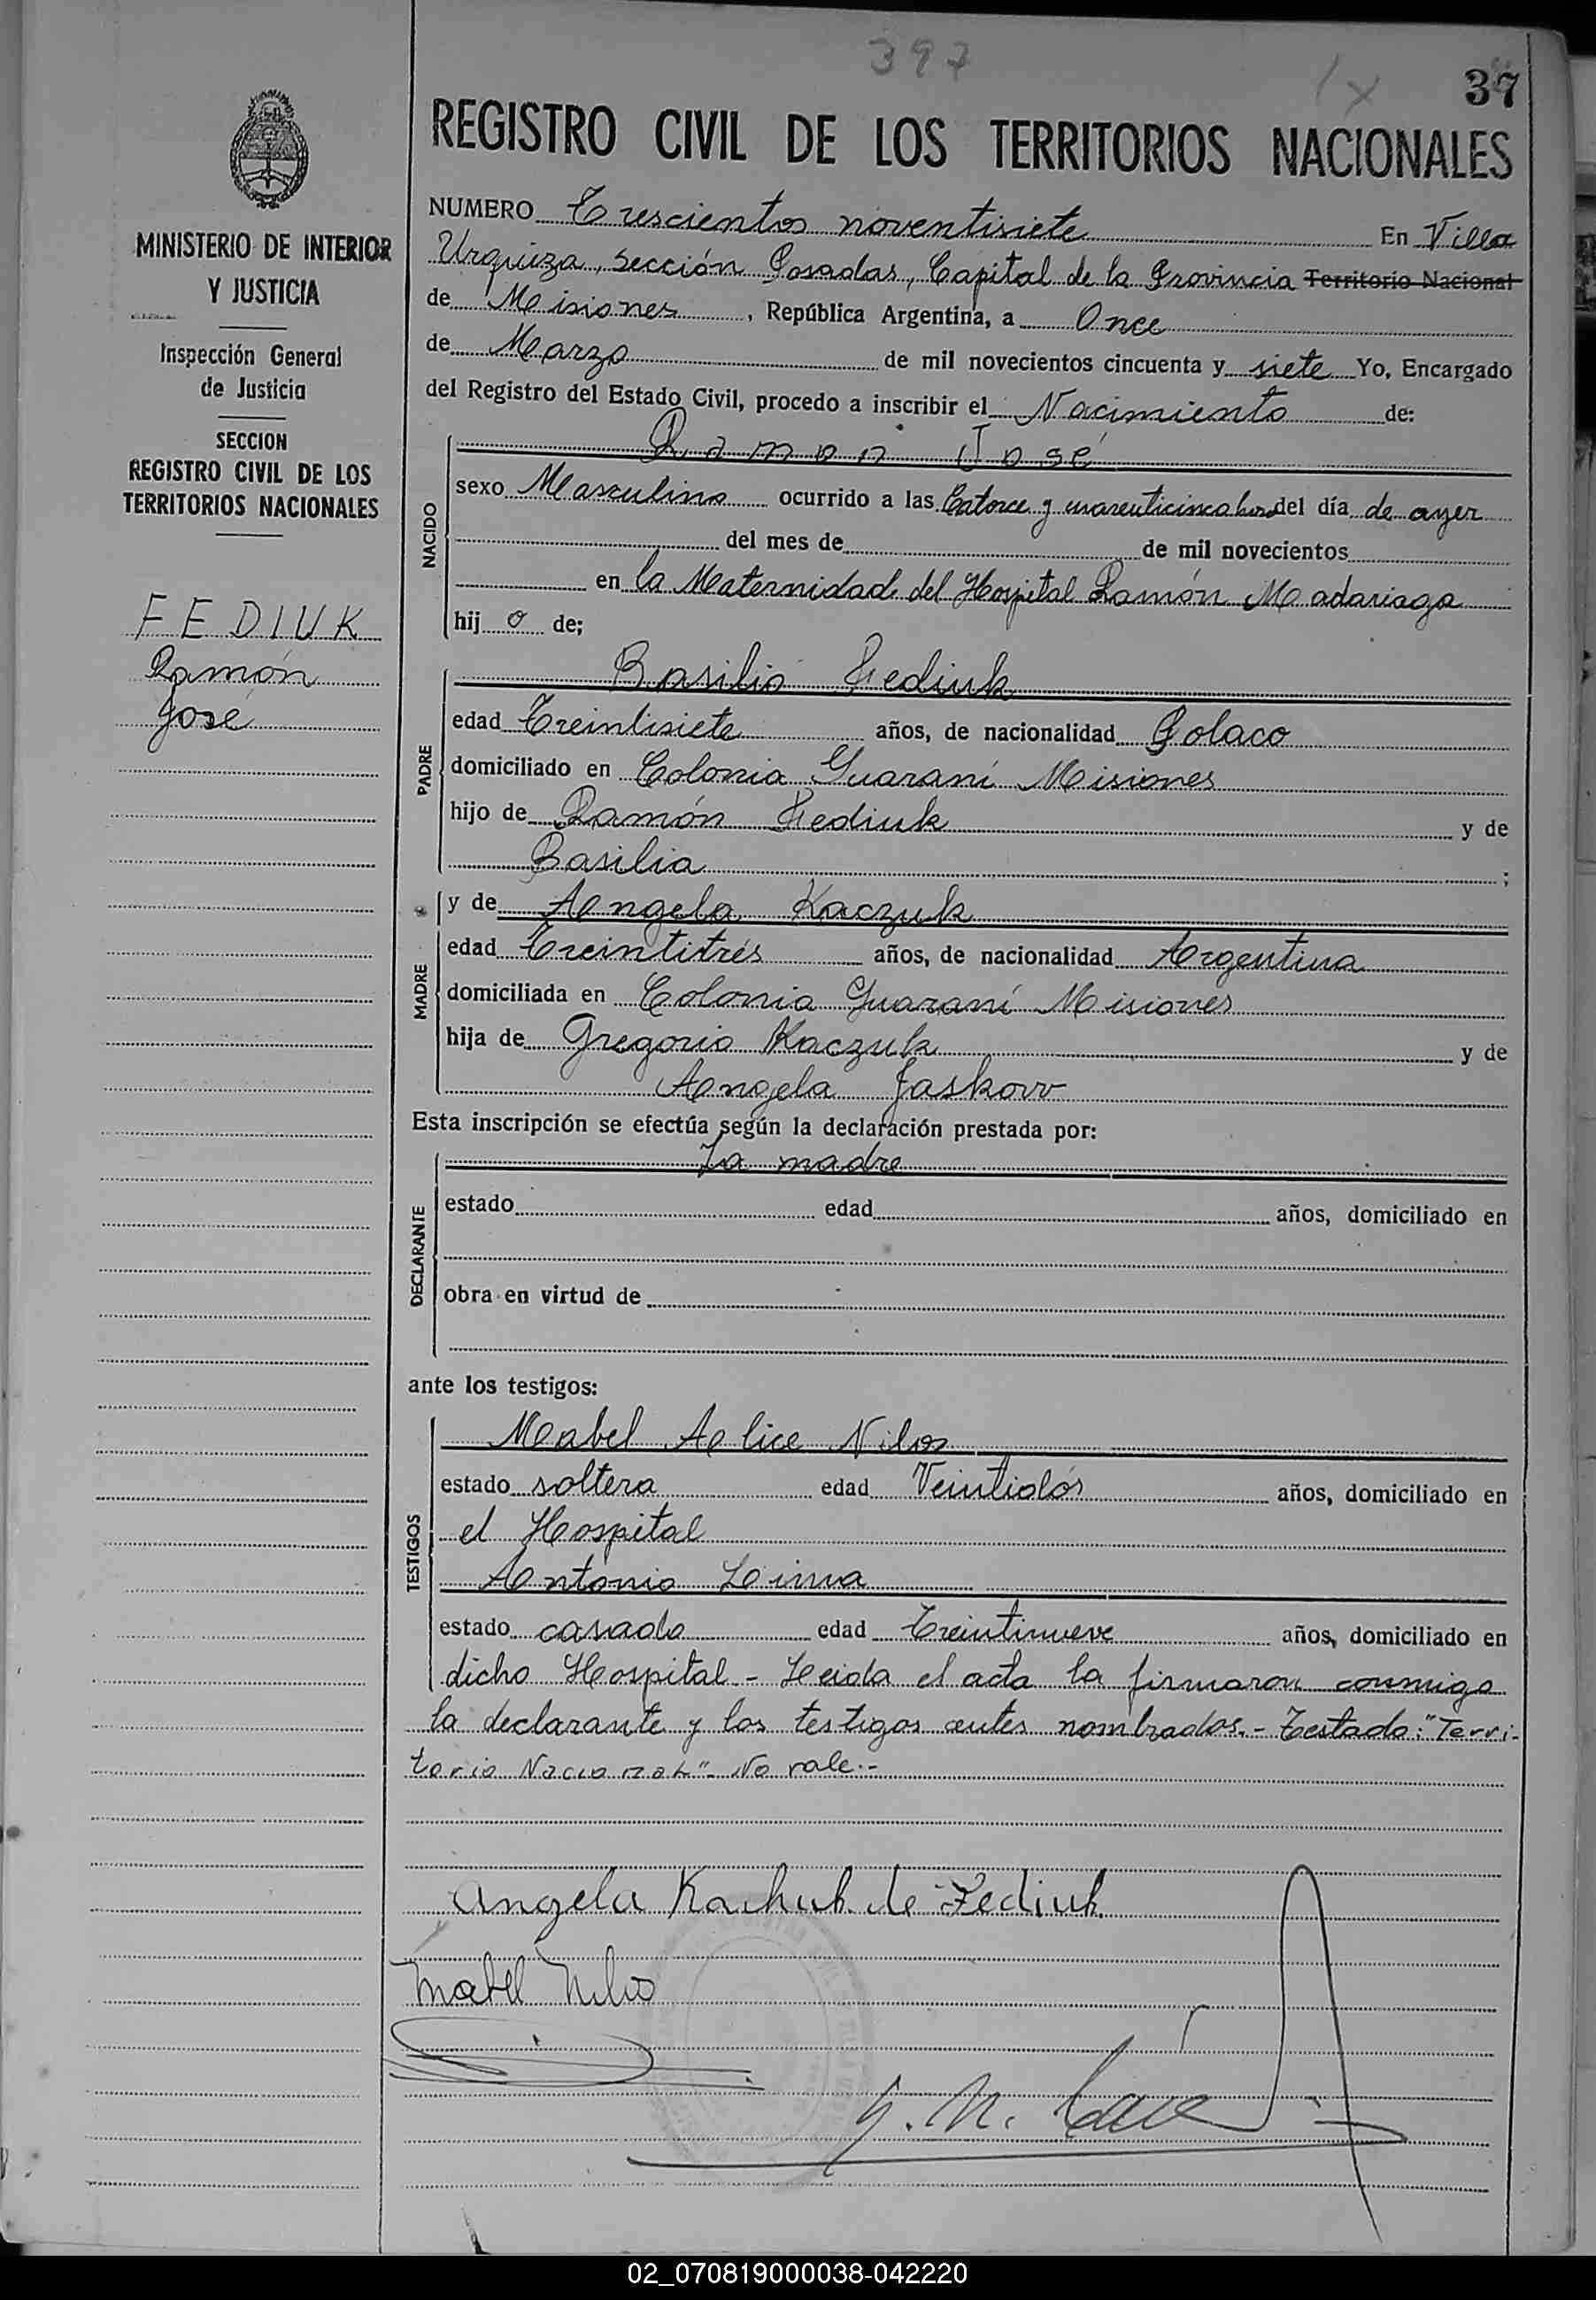 397
37
REGISTRO CIVIL DE LOS TERRITORIOS NACIONALES
MINISTERIO DE INTERIOR
Y JUSTICIA
Inspección General
de Justicia
SECCION
REGISTRO CIVIL DE LOS
TERRITORIOS NACIONALES
FEDIUK
Ramón
José
NUMERO Trescientos noventisiete En Villa
Urquiza, sección Posadas, Capital de la Provincia Territorio Nacional
de Misiones, República Argentina, a Once
de Marzo de mil novecientos cincuenta y siete Yo, Encargado
del Registro del Estado Civil, procedo a inscribir el Nacimiento de:
NACIDO
Ramón José
sexo Masculino ocurrido a las Catorce y cuarenticinco horas del día de ayer
del mes de de mil novecientos
en la Maternidad del Hospital Ramón Madariaga
hijo de;
PADRE
Basilio Fediuk
edad Treintisiete años, de nacionalidad Polaco
domiciliado en Colonia Guaraní Misiones
hijo de Ramón Fediuk y de
Basilia ;
MADRE
y de Angela Kaczuk
edad Treintitrés años, de nacionalidad Argentina
domiciliada en Colonia Guaraní Misiones
hija de Gregorio Kaczuk y de
Angela Jaskow
Esta inscripción se efectúa según la declaración prestada por:
DECLARANTE
La madre
estado edad años, domiciliado en
obra en virtud de
ante los testigos:
TESTIGOS
Mabel Alice Nilos
estado soltera edad Veintidós años, domiciliado en
el Hospital
Antonio Leiva
estado casado edad Treintinueve años, domiciliado en
dicho Hospital - Leida el acta la firmaron conmigo
la declarante y los testigos antes nombrados.- Testado: "Terri-
torio Nacional" No vale.-
Angela Kachuk de Fediuk
Mabel
02_070819000038-042220